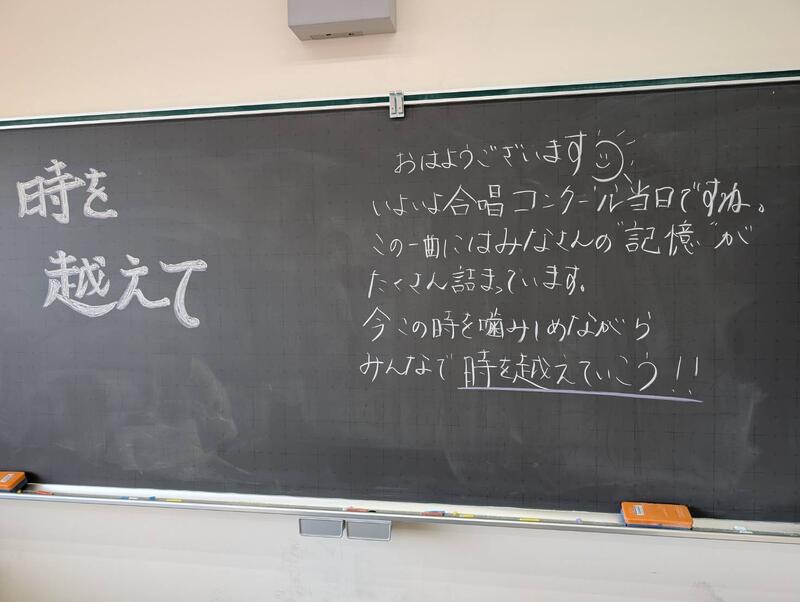 時を
越えて
おはようございます
いよいよ合唱コンクール当日ですね。
この一曲にはみなさんの"記憶"が
たくさん詰まっています。
今この時を噛みしめながら
みんなで時を越えていこう!!